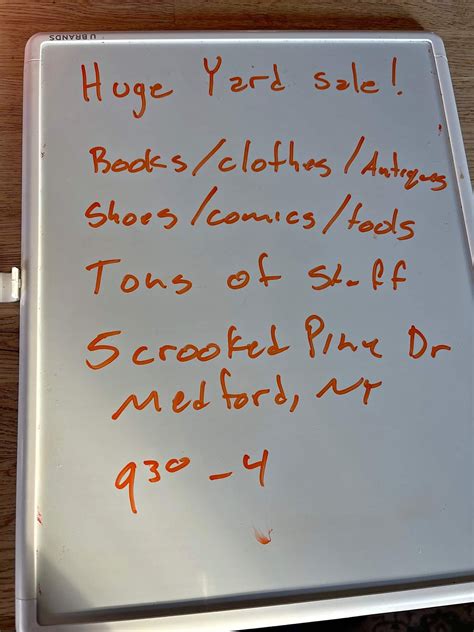 U BRANDS
Huge Yard sale!
Books/clothes/Antiques
Shoes/comics/tools
Tons of Stuff
5 crooked Pine Dr
Medford, NY
930 - 4